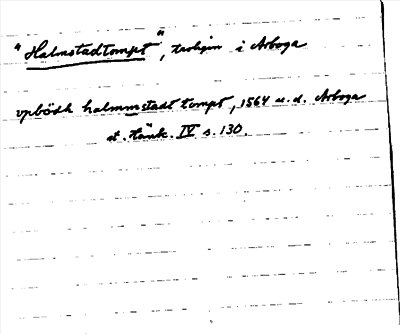 "Halmstadtompt", troligen i Arboga
upbödh halmmstadt tompt, 1564 u.d. Arboga
st. tänk. IV s. 130.